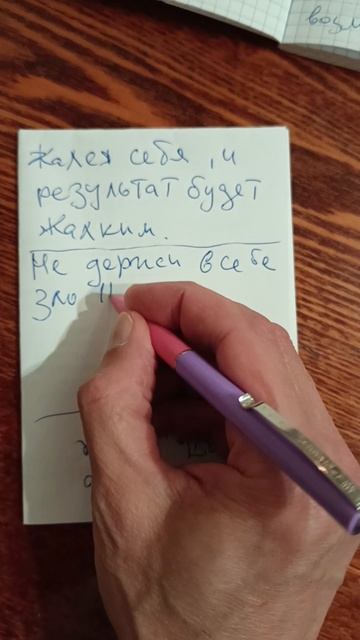 возм
Жалея себя, и
результат будет
жалким.
Не держи в себе
зло и